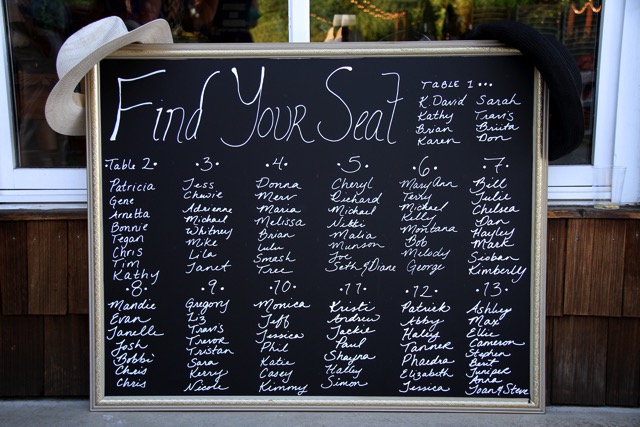 Find Your Seat
TABLE 1...
K David Sarah
Kathy Travis
Brian Briita
Karen Don
Table 2.
Patricia
Gene
Arnetta
Bonnie
Tegan
Chris
Tim
Kathy
.3.
Jess
Chewie
Adrienne
Michael
Whitney
Mike
Lila
Janet
.4.
Donna
Merv
Maria
Melissa
Brian
Lulu
Smash
Tree
5.
Cheryl
Richard
Michael
Nikki
Malia
Munson
Joe
Seth & Diane
.6.
MaryAnn
Terry
Michael
Kelly
Montana
Bob
Melody
George
.7.
Bill
Julie
Chelsea
Dan
Hayley
Mark
Sioban
Kimberly
.8.
Mandie
Evan
Janelle
Josh
Bobbi
Chris
Chris
.9.
Gregory
Liz
Travis
Trevor
Tristan
Sara
Kerry
Nicole
.10.
Monica
Jeff
Jessica
Phil
Katie
Casey
Kimmy
.11.
Kristi
Andrew
Jackie
Paul
Shayna
Hailey
Simon
.12.
Patrick
Abby
Haley
Tanner
Phaedra
Elizabeth
Jessica
.13.
Ashley
Max
Ellie
Cameron
Stephen
Berit
Juniper
Anna
Joan & Steve